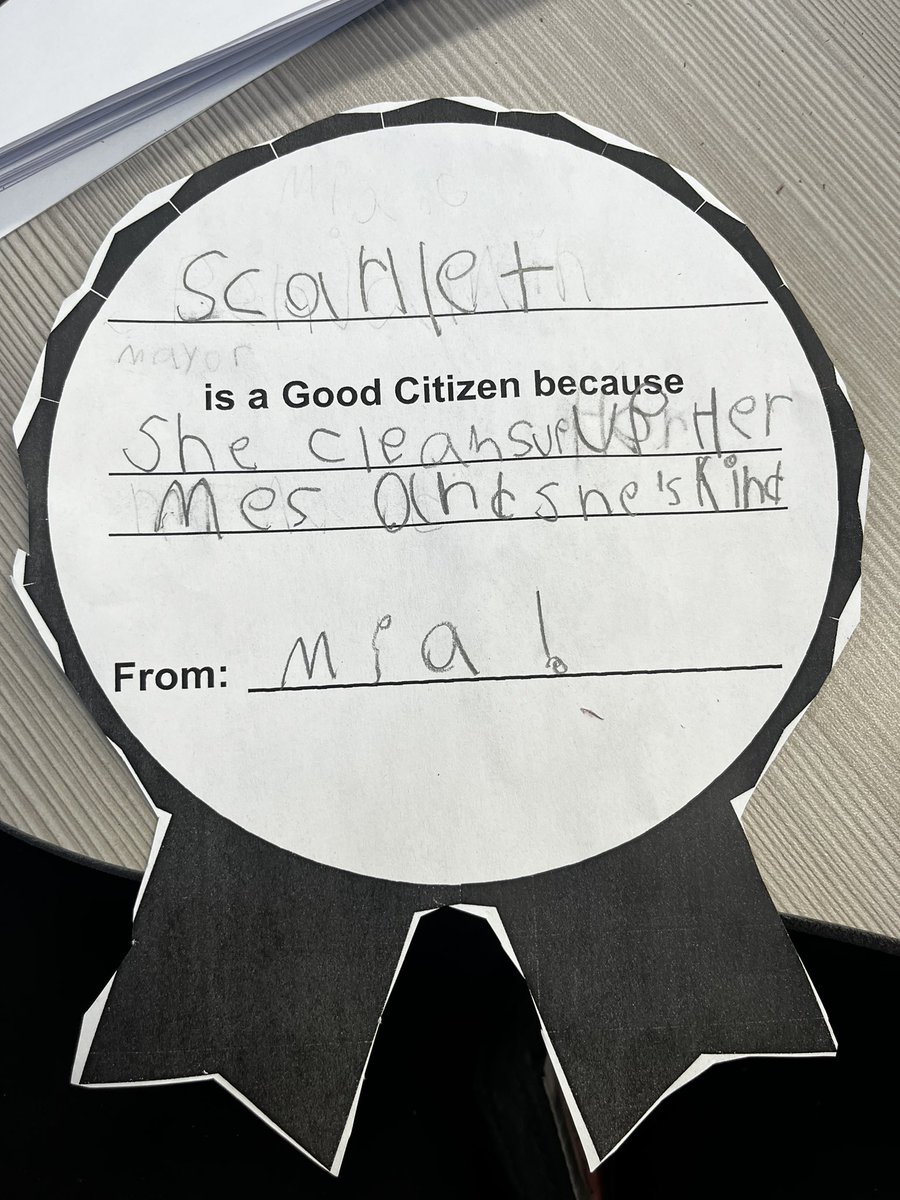 Scarlet
mayor
is a Good Citizen because
She cleans up Her
Mes and she's Kind
From: Mia!